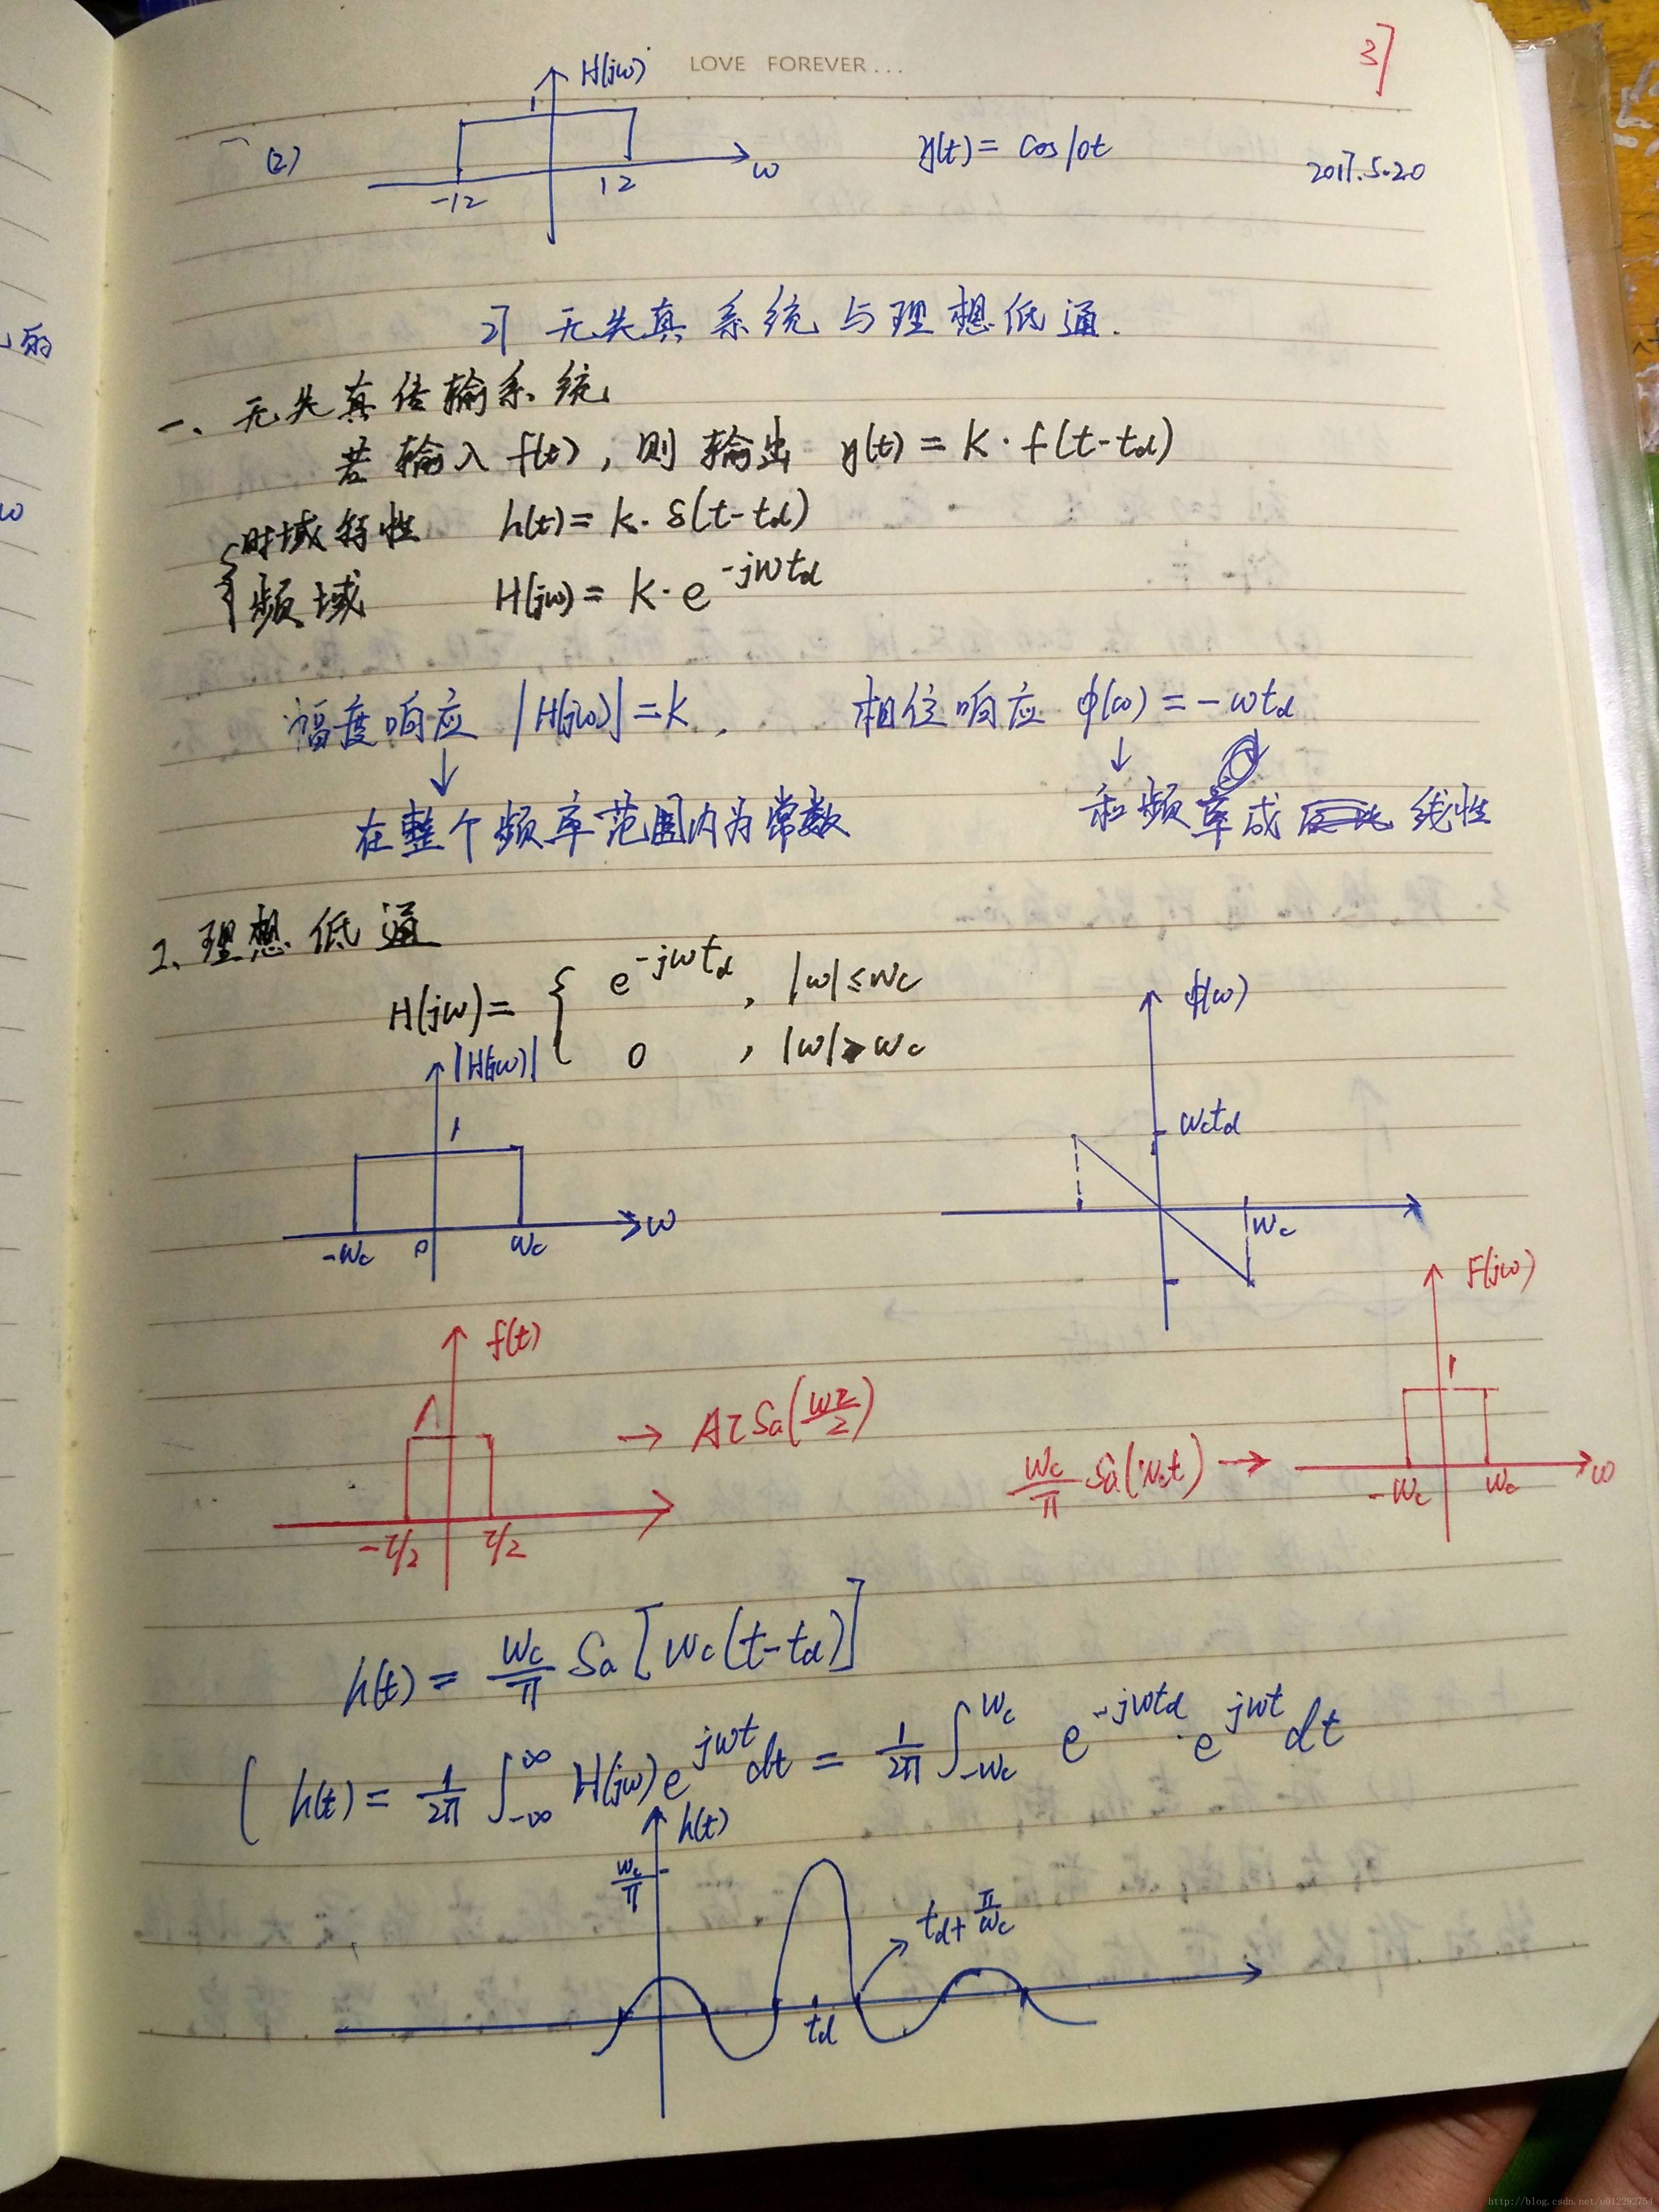 LOVE FOREVER...
37
(2) H(jω) 1 -12 12 ω y(t) = cos10t 2017.5.20
27 无失真系统与理想低通.
一、无失真传输系统
若输入 f(t), 则输出 y(t) = K · f(t-td)
时域特性 h(t) = k · δ(t-td)
频域 H(jω) = K · e^{-jωtd}
幅度响应 |H(jω)| = K , 相位响应 φ(ω) = -ωtd
↓ ↓
在整个频率范围内为常数 和频率成 线性
2、理想低通
H(jω) = { e^{-jωtd} , |ω| ≤ ωc
0 , |ω| > ωc
|H(jω)| 1 -ωc 0 ωc ω
φ(ω) ωctd ωc
f(t) -τ/2 τ/2 → AτSa(ωτ/2)
ωc/π Sa(ωct) → F(jω) 1 -ωc ωc ω
h(t) = ωc/π Sa[ωc(t-td)]
( h(t) = 1/2π ∫_{-∞}^{∞} H(jω)e^{jωt}dt = 1/2π ∫_{-ωc}^{ωc} e^{-jωtd} · e^{jωt} dt
h(t)
ωc/π
td + π/ωc
td
http://blog.csdn.net/u012292754